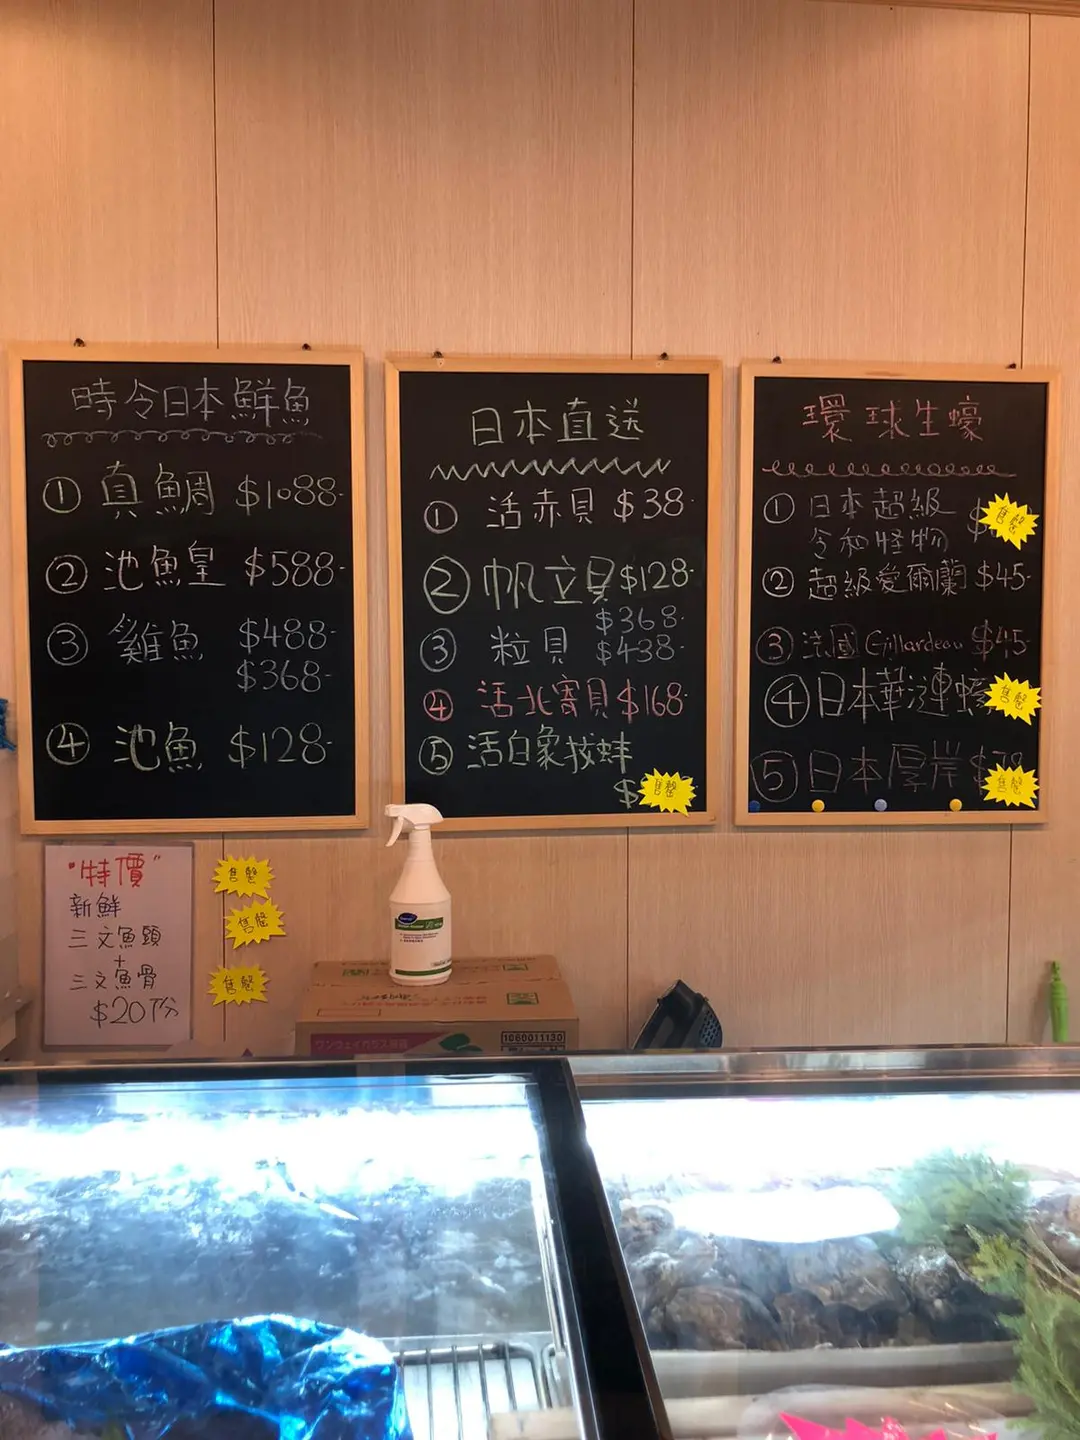 時令日本鮮魚
① 真鯛 $1088-
② 池魚皇 $588-
③ 雞魚 $488-
$368-
④ 池魚 $128-
日本直送
① 活赤貝 $38-
② 帆立貝 $128-
$368-
③ 粒貝 $438-
④ 活北寄貝 $168-
⑤ 活白象拔蚌
$
售罄
環球生蠔
① 日本超級 $
令和怪物
售罄
② 超級愛爾蘭 $45-
③ 法國 Gillardeau $45-
④ 日本華漣蠔
售罄
⑤ 日本厚岸
售罄
"特價"
新鮮
三文魚頭
+
三文魚骨
$20/份
售罄
售罄
售罄
1060011130